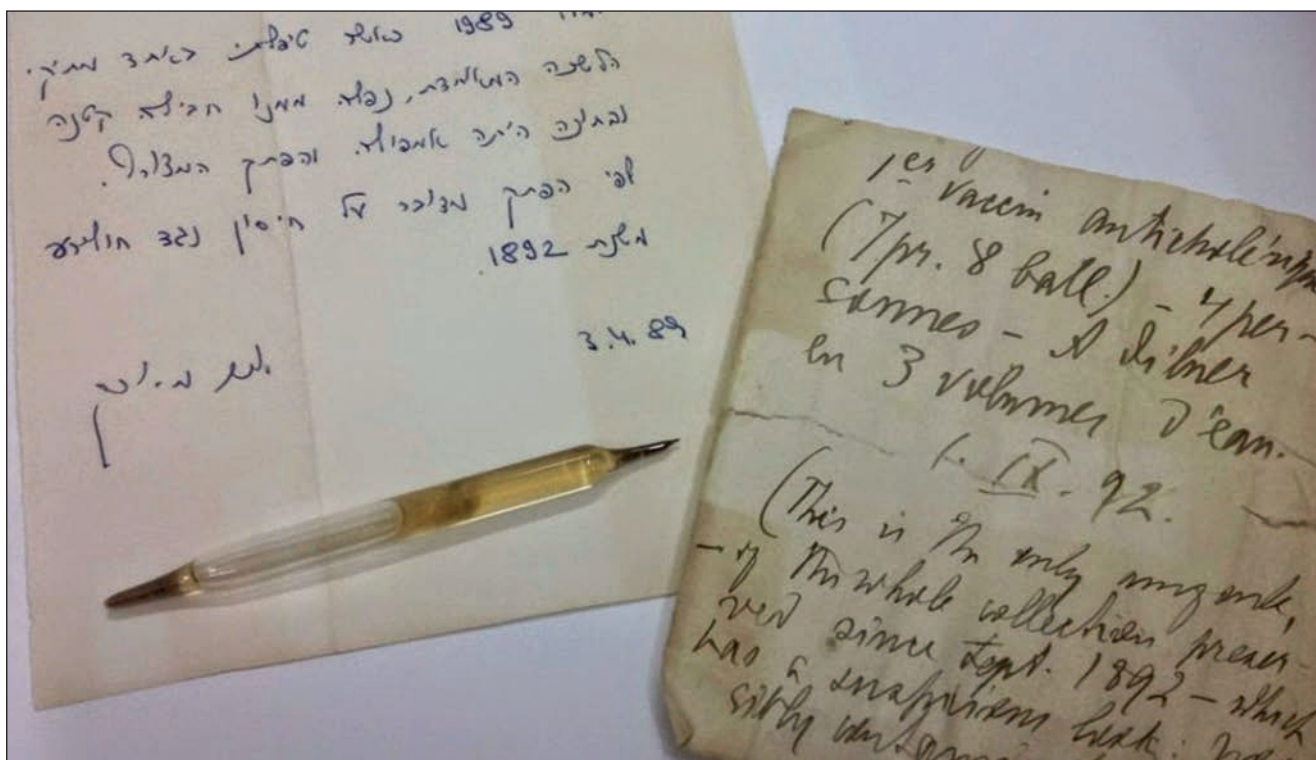 1989 כאשר טיפלתי באחד מתיקי
הלשכה המתאימה, נפלה ממנו חבילה קטנה
ובתוכה היתה אמפולה והפתק המצורף.
לפי הפתק מדובר על חיסין נגד חולירע
משנת 1892.
3.4.89
1er vaccin anticholérique
(7pr. 8 ball.) - 4 per-
sonnes - A diluer
en 3 volumes d'eau.
1. IX. 92.
(This is the only
- of the whole collection preser-
ved since Sept. 1892 - which
has a suspicious look: